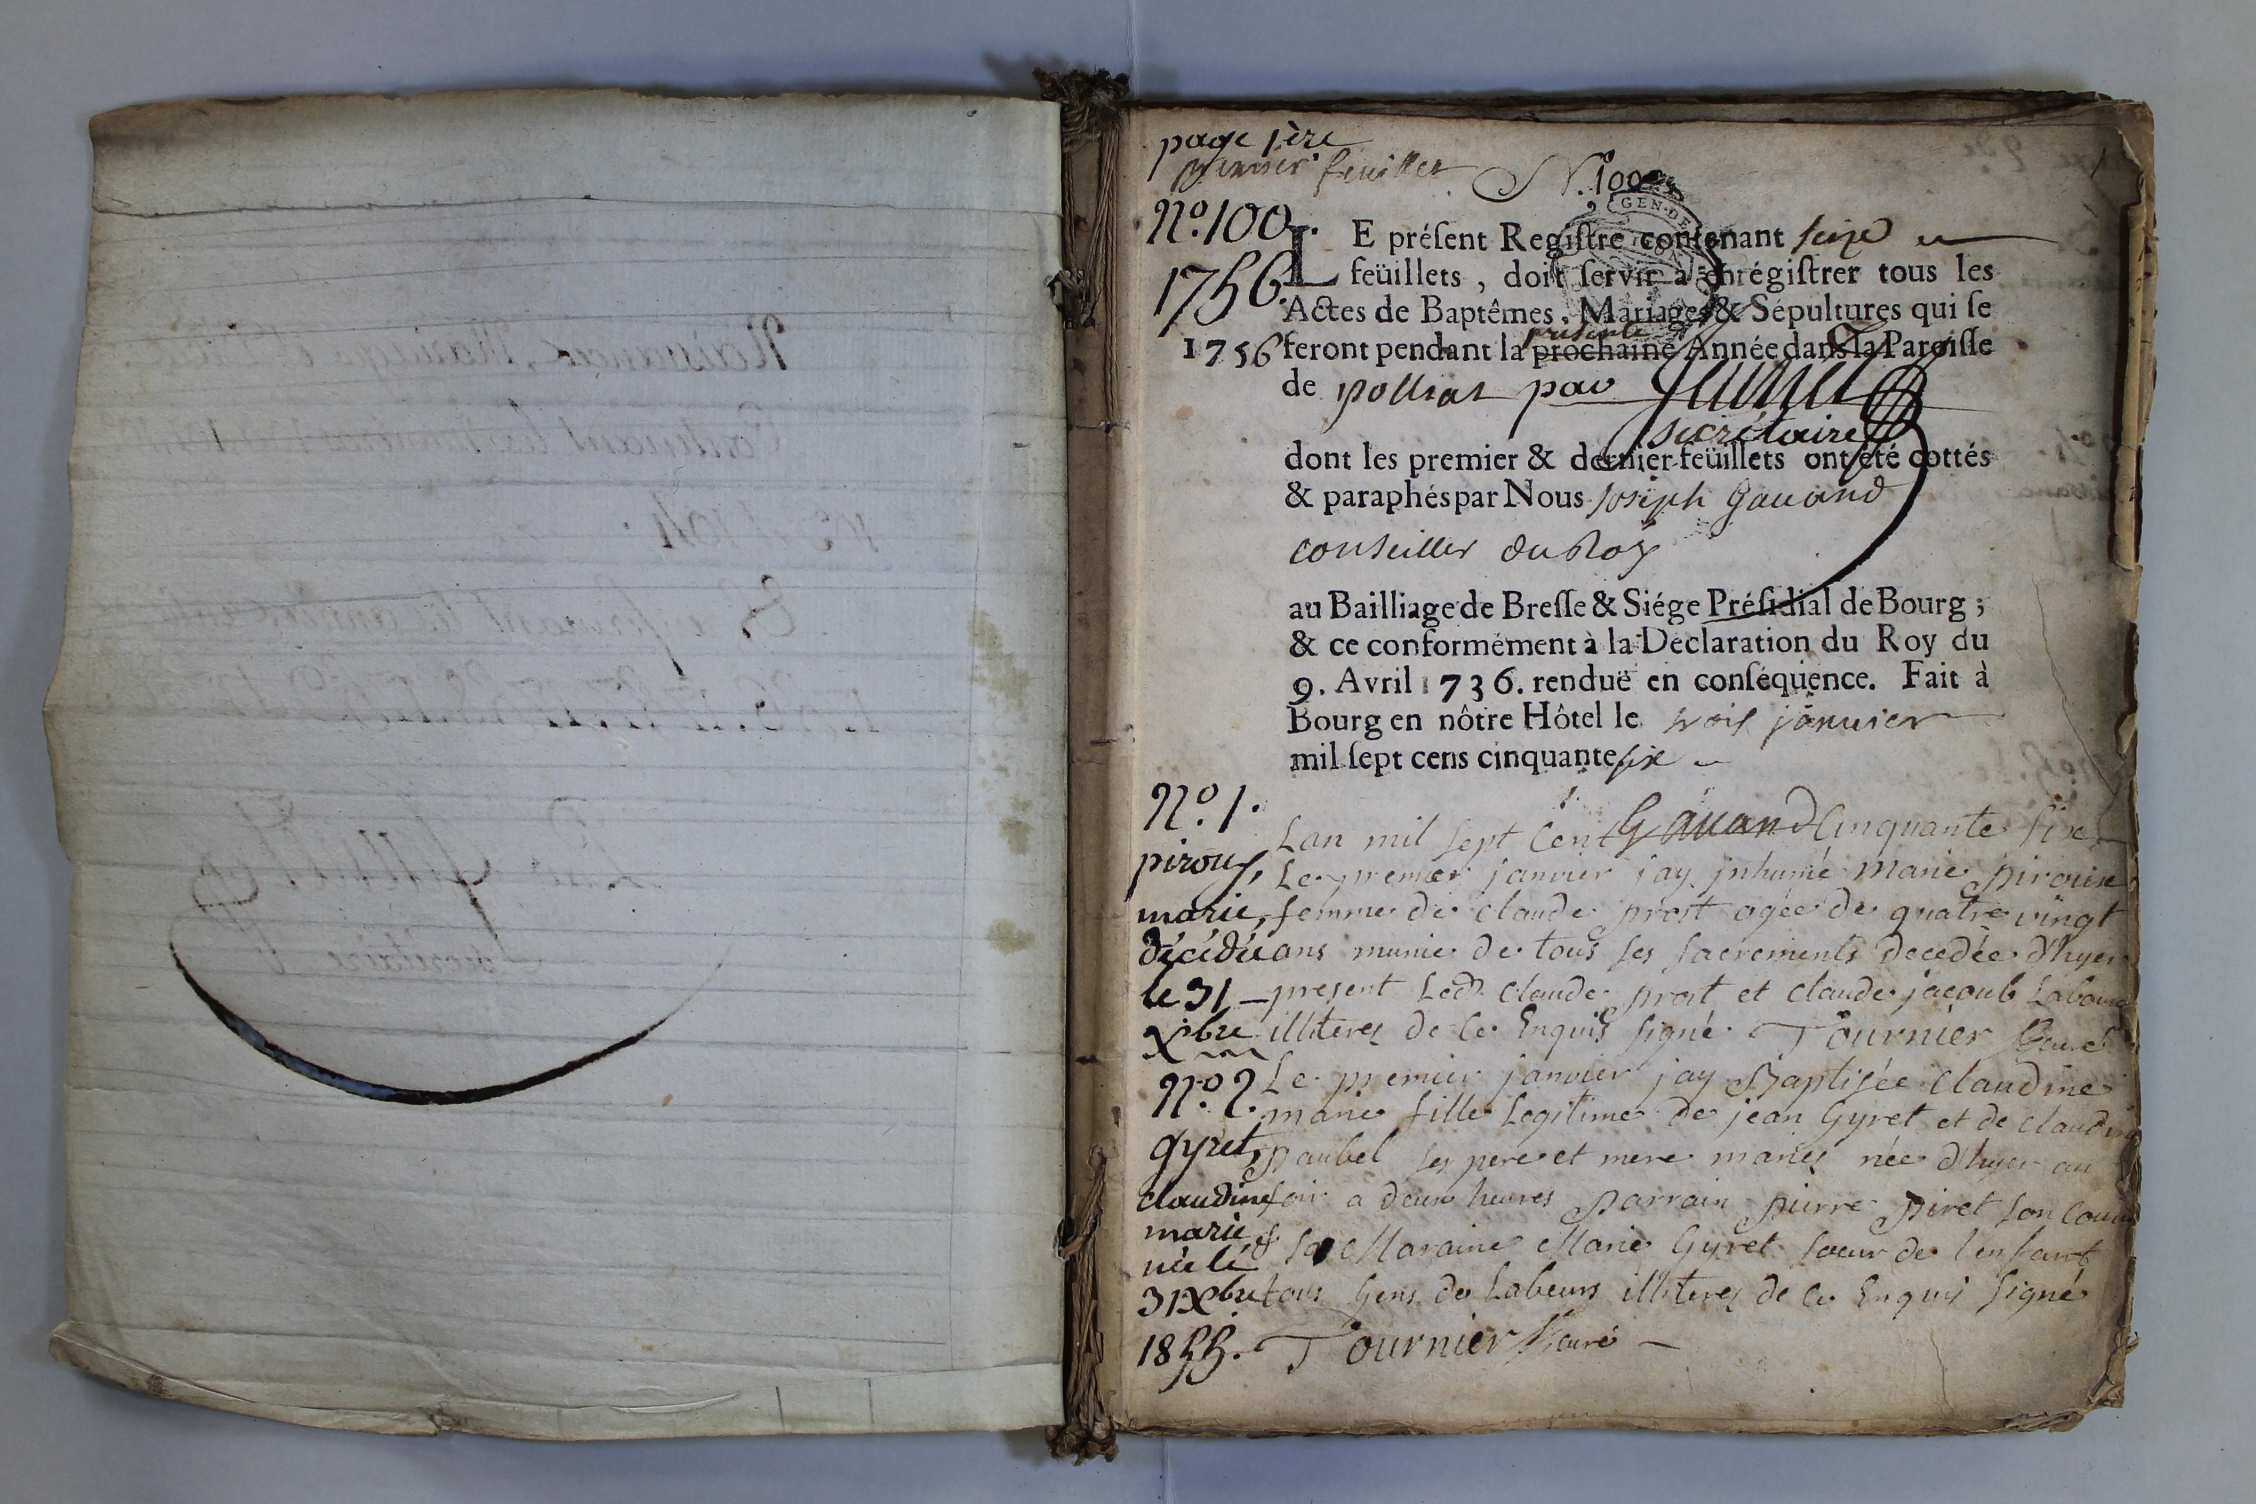 page 1ère
premier feuillet N. 100
GEN. DE
No. 100.
1756.
LE préſent Regiſtre contenant ſeize
feüillets, doit ſervir à enrégiſtrer tous les
Actes de Baptêmes, Mariages & Sépultures qui ſe
presente
1756 feront pendant la prochaine Année dans la Paroiſſe
de polliat par
secrétaire
dont les premier & dernier feüillets ont été cottés
& paraphés par Nous Joseph Gauand
conseiller du Roy
au Bailliage de Breſſe & Siége Préſidial de Bourg ;
& ce conformément à la Déclaration du Roy du
9. Avril 1736. renduë en conſéquence. Fait à
Bourg en nôtre Hôtel le trois janvier
mil ſept cens cinquante six
Gauand
No. 1.
pirouz,
marie,
décédée
le 31
Xbre
Lan mil sept Cent Cinquante six
Le premier janvier jay jnhumé marie pirouse
femme de claude prost agée de quatre vingt
ans munie de tous ses sacrements decedée d'hyer
present Ledt claude prost et claude jacoub
illiterez de ce Enquis signé Tournier Curé
No. 2.
gyret,
claudine
marie
née le
31 Xbre
1855.
Le premier janvier jay Baptisée claudine
marie fille Legitime de jean Gyret et de claudine
paubel ses pere et mere mariés née d'hyer au
soir a deux heures parrain pierre piret son
sa Maraine Marie Gyret soeur de l'enfant
tous Gens de Labeurs illiterez de ce Enquis signé
Tournier Curé